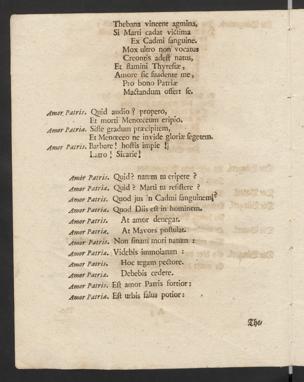 Thebana vincent agmina,
Si Marti cadat victima
Ex Cadmi sanguine.
Mox ultro non vocatus
Creontis adest natus,
Et flamini Thyresiæ,
Amore sic suadente me,
Pro bono Patriæ
Mactandum offert se.
Amor Patris. Quid audio? propero,
Et morti Menœceum eripio.
Amor Patriæ. Siste gradum præcipitem,
Et Menœceo ne invide gloriæ segetem.
Amor Patris. Barbare! hostis impie!
Latro! Sicarie!
Amor Patris. Quid? natum tu eripere?
Amor Patriæ. Quid? Marti tu resistere?
Amor Patris. Quod jus in Cadmi sanguinem?
Amor Patriæ. Quod Diis est in hominem.
Amor Patris. At amor denegat.
Amor Patriæ. At Mavors postulat.
Amor Patris. Non sinam mori natum:
Amor Patriæ. Videbis immolatum:
Amor Patris. Hoc tegam pectore.
Amor Patriæ. Debebis cedere.
Amor Patris. Est amor Patris fortior:
Amor Patriæ. Est urbis salus potior:
The